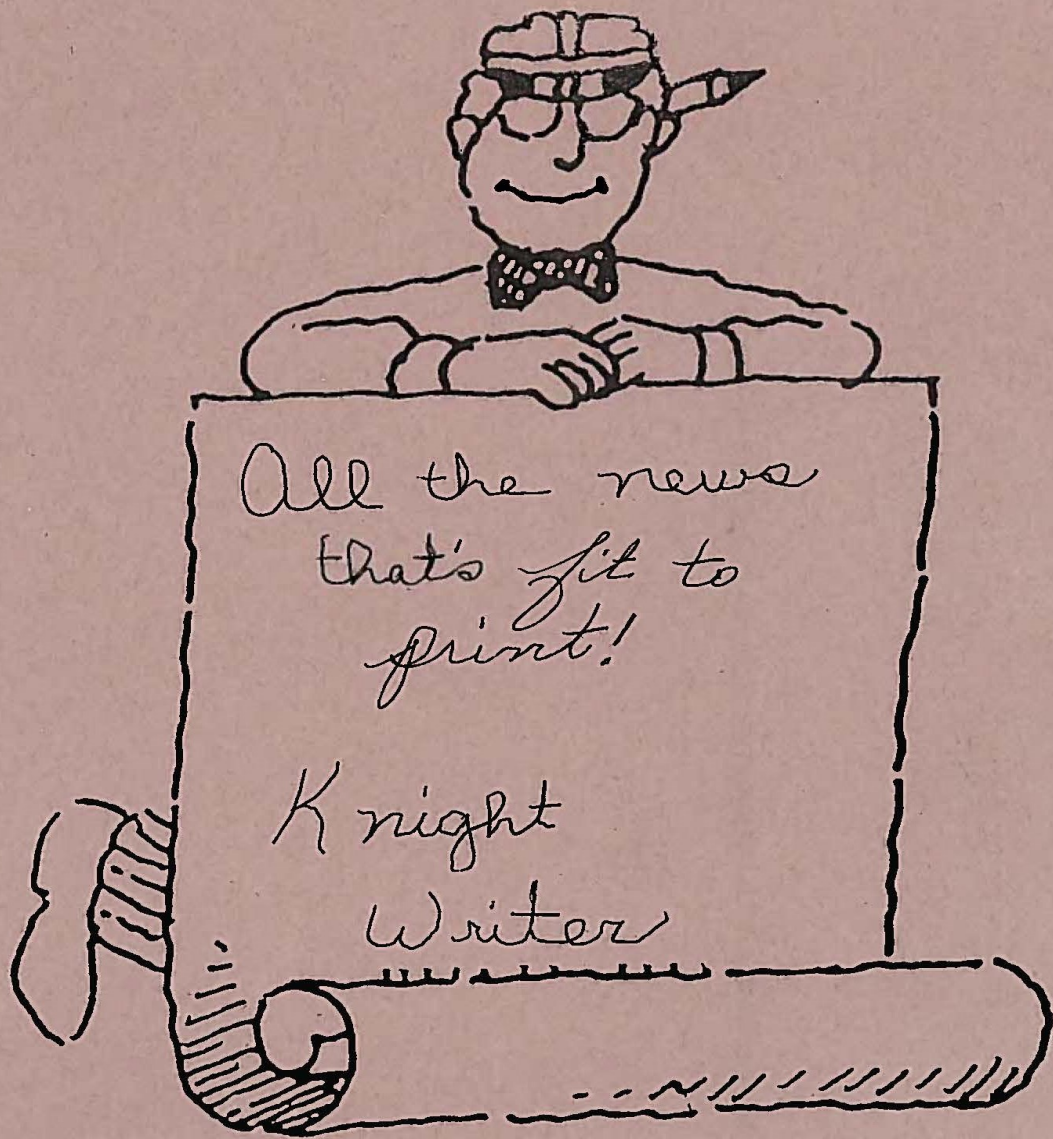 All the news
that's fit to
print!
Knight
Writer